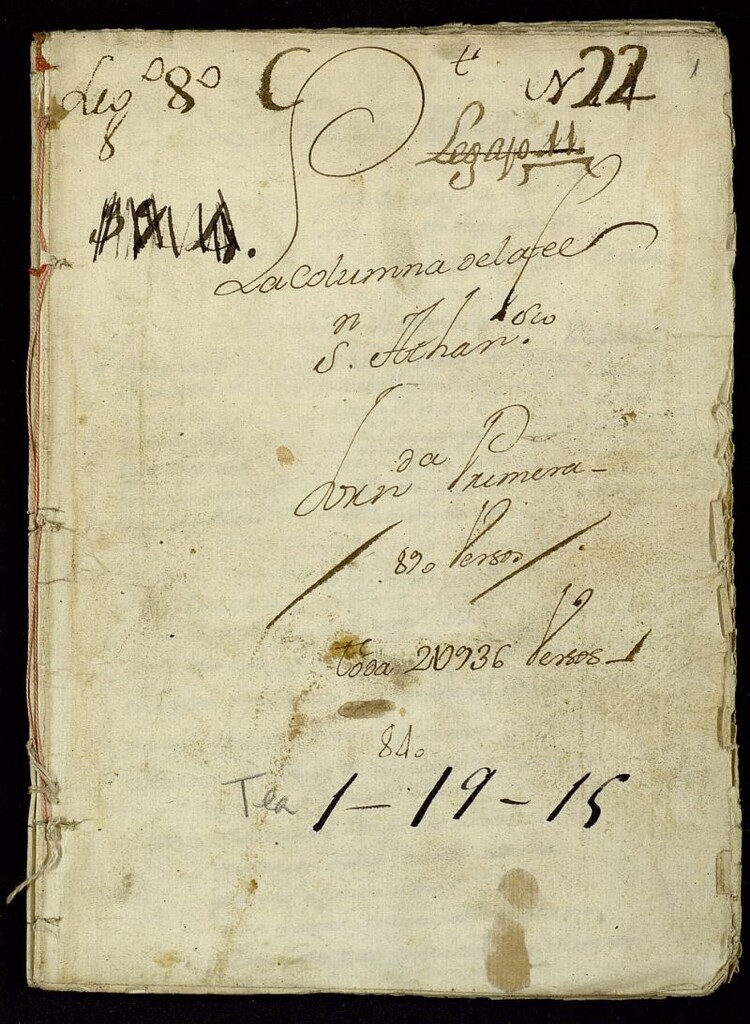 Leg.º 8º C tt N 22 1
8
Legajo 11
La columna de la fee
n S. Athan.sio
Jorn da Primera
/ 890 Versos /.
toda 20936 Versos
840
Tea 1-19-15